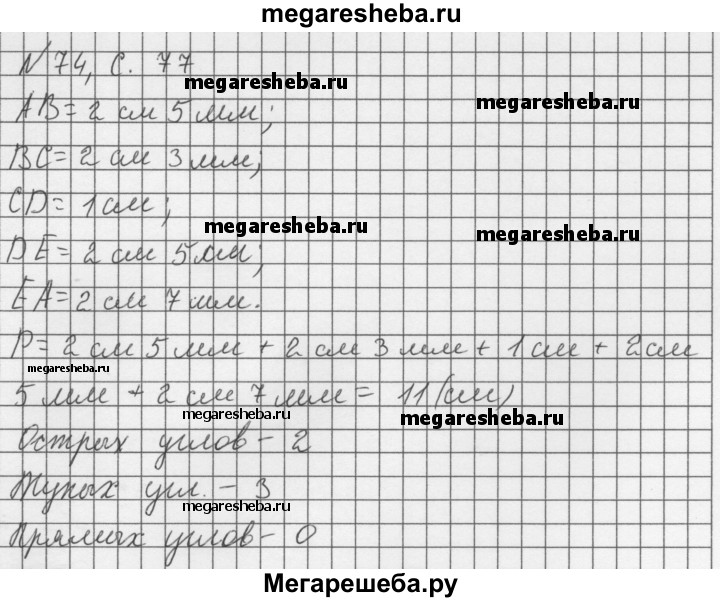 megaresheba.ru
N 74, с. 77
megaresheba.ru
AB = 2 см 5 мм;
megaresheba.ru
BC = 2 см 3 мм;
CD = 1 см;
megaresheba.ru
megaresheba.ru
DE = 2 см 5 мм;
EA = 2 см 7 мм.
P = 2 см 5 мм + 2 см 3 мм + 1 см + 2 см
megaresheba.ru
5 мм + 2 см 7 мм = 11 (см)
megaresheba.ru
megaresheba.ru
Острых углов - 2
Тупых угл. - 3
megaresheba.ru
Прямых углов - 0
Мегарешеба.ру